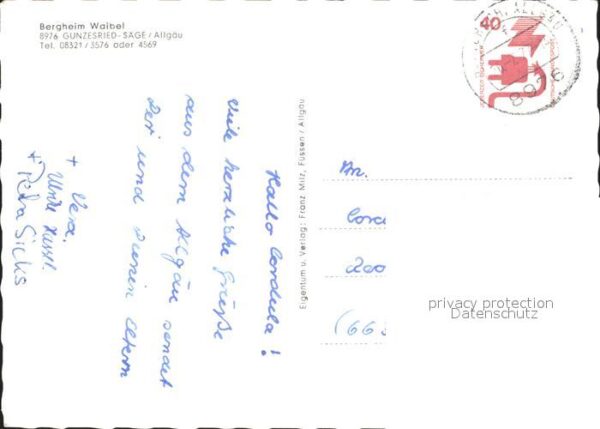 Bergheim Waibel
8976 GUNZESRIED-SÄGE / Allgäu
Tel. 08321 / 3576 oder 4569
Hallo Cordula!
Viele herzliche Grüße
aus dem Allgäu sendet
Dir und Deinen Eltern
Vera,
+
+ Petra
Eigentum u. Verlag: Franz Milz, Füssen / Allgäu
40
An
Cord
200
(66
privacy protection
Datenschutz